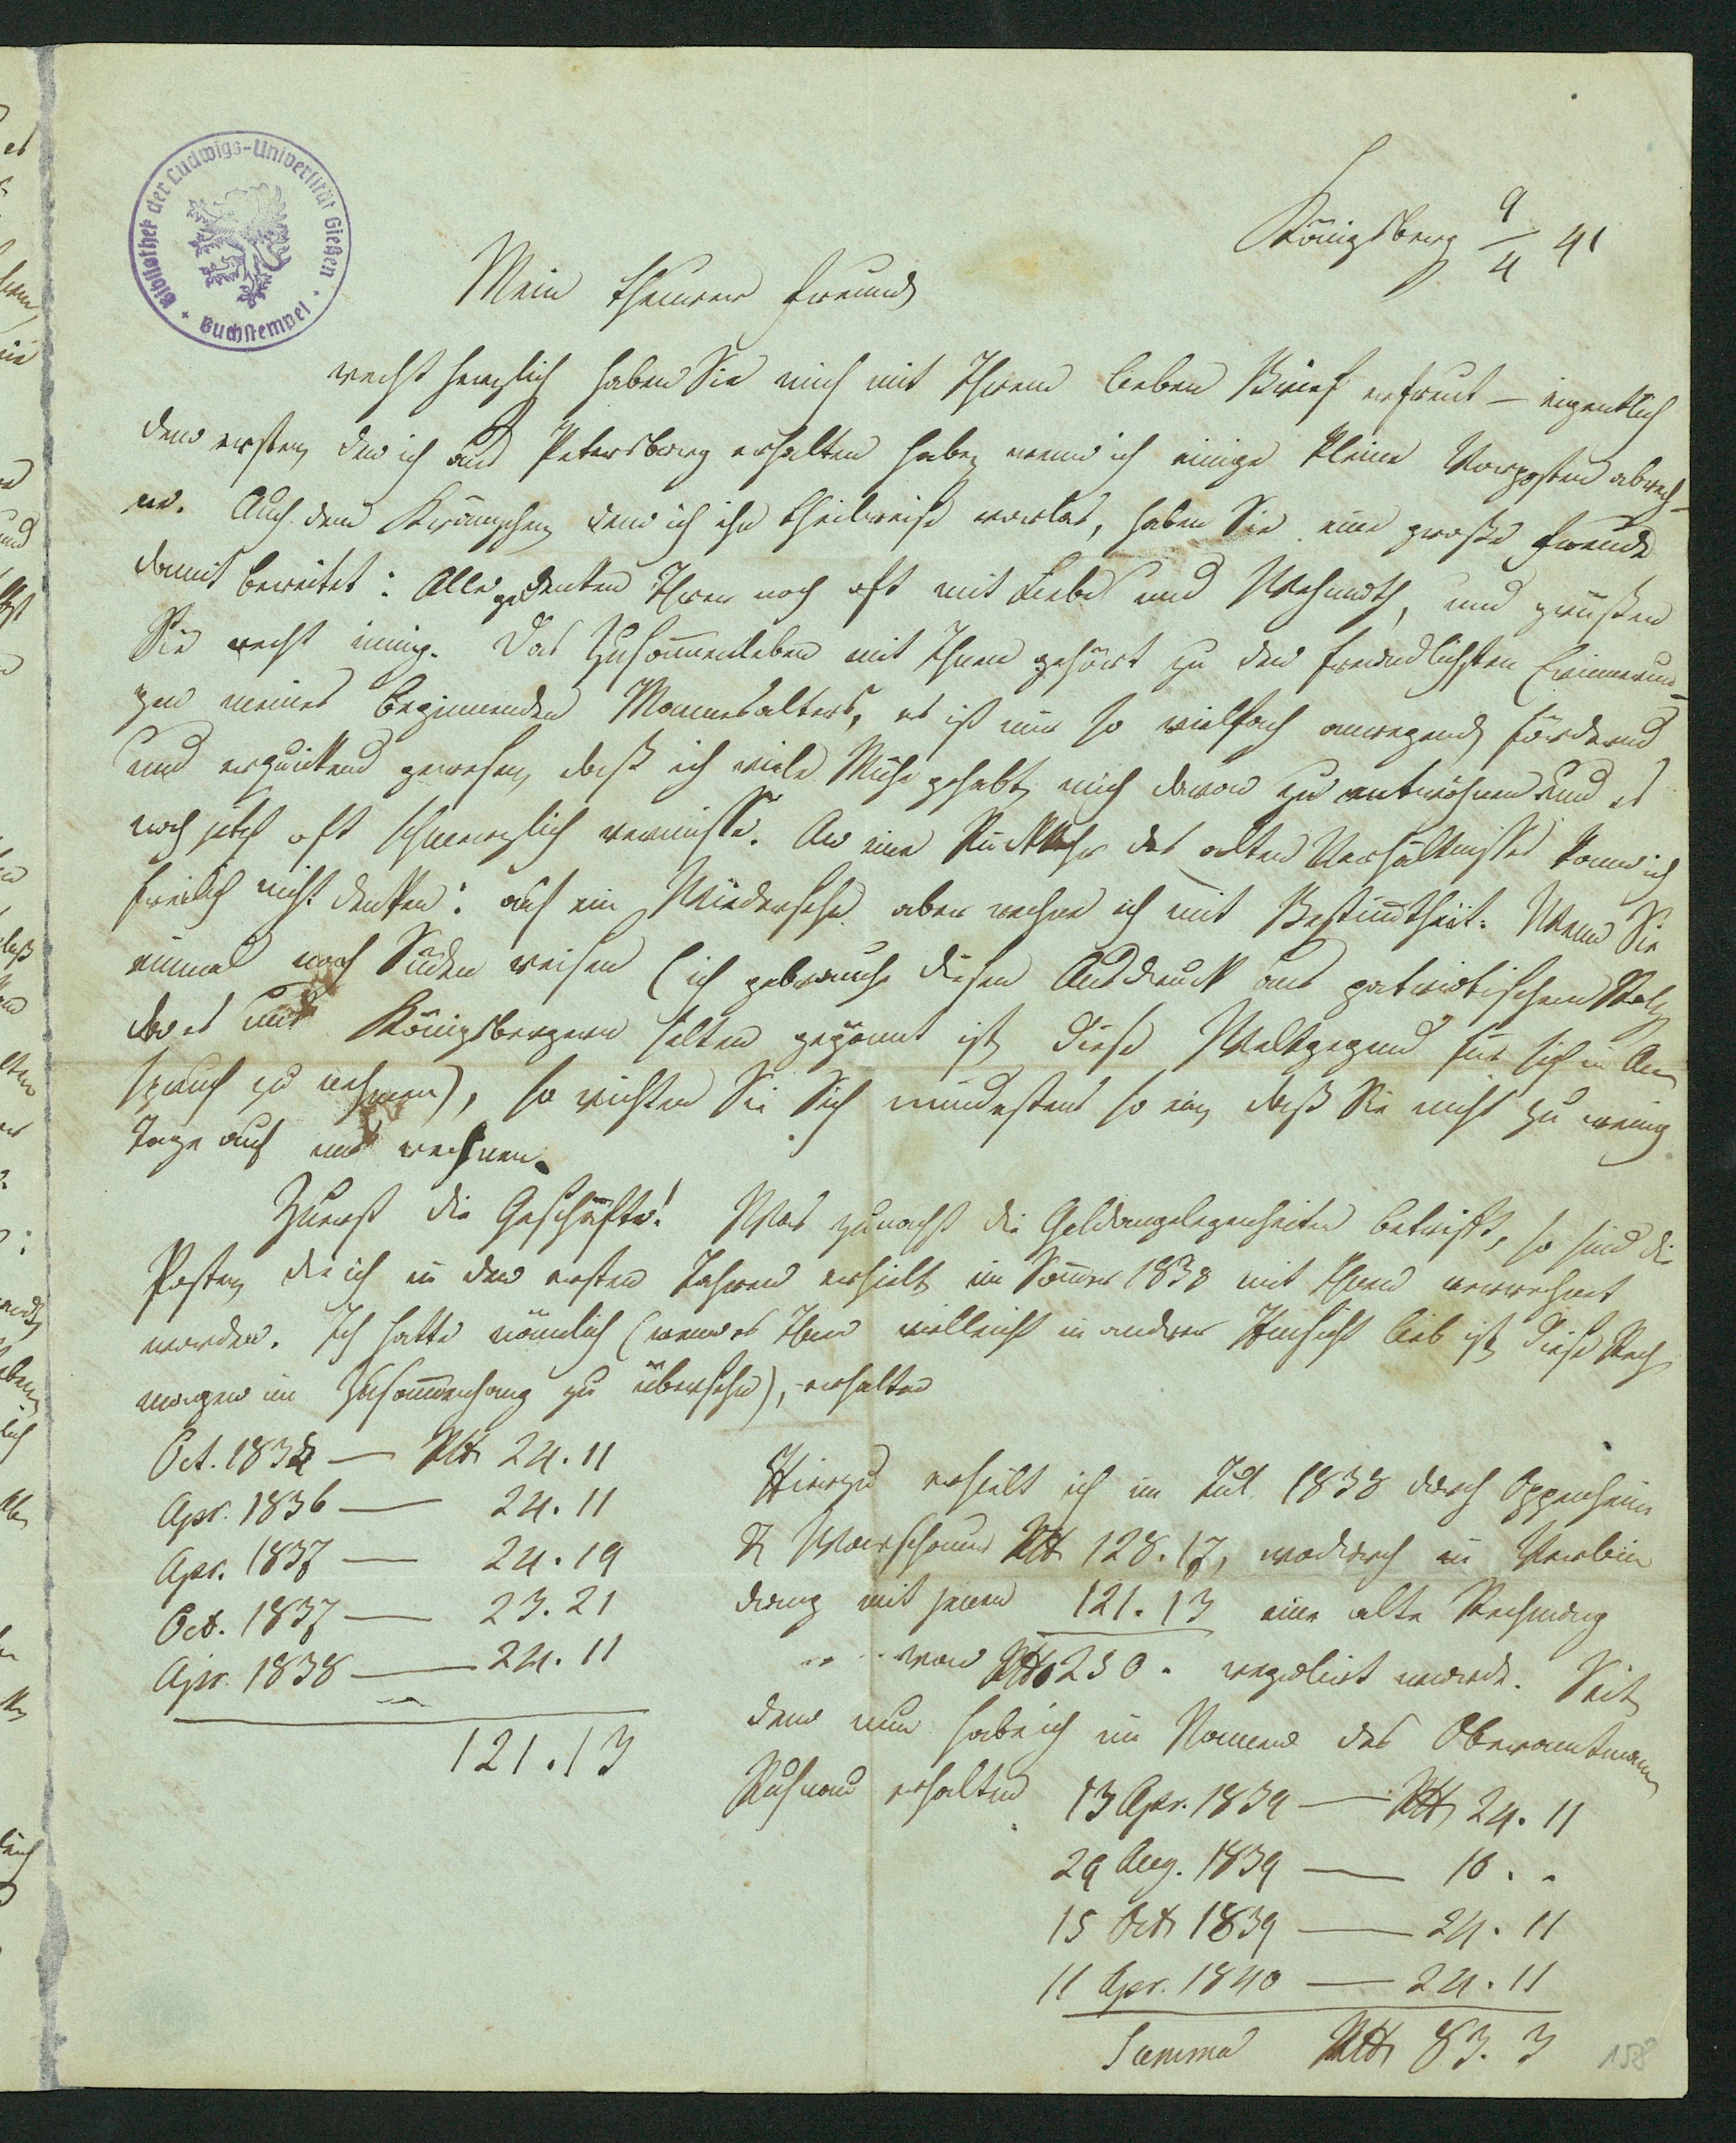 Bibliothek der Ludwigs-Universität Gießen
Buchstempel
Königsberg 9/4 41
Mein theurer Freund
recht herzlich haben Sie mich mit Ihrem lieben Brief erfreut — eigentlich
den ersten, den ich aus Petersburg erhalten habe, wenn ich einige kleine Vorposten abrech-
ne. Auch dem Kränzchen, dem ich ihn theilweise vorlas, haben Sie eine große Freude
damit bereitet: Alle gedenken Ihrer noch oft mit Liebe und Wehmuth, und grüßen
Sie recht innig. Das Zusammenleben mit Ihnen gehört zu den freundlichsten Erinnerun-
gen meines beginnenden Mannesalters, es ist mir so vielfach anregend, fördernd
und erquickend gewesen, daß ich viele Mühe gehabt, mich davon zu entwöhnen und es
noch jetzt oft schmerzlich vermisse. An eine Rückkehr des alten Verhältnisses kann ich
freilich nicht denken: auf ein Wiedersehn aber rechne ich mit Bestimtheit. Wenn Sie
einmal nach Süden reisen (ich gebrauche diesen Ausdruck aus patriotischem Stolz,
da es uns Königsbergern selten gegönnt ist, diese Weltgegend für sich in An
spruch zu nehmen), so richten Sie Sich mindestens so ein, daß Sie nicht zu wenig
Tage auf uns rechnen.
Zuerst die Geschäfte! Was zunächst die Geldangelegenheiten betrifft, so sind die
Posten, die ich in den ersten Jahren erhielt, im Sommer 1838 mit Ihnen verrechnet
worden. Ich hatte nämlich (wenn es Ihnen vielleicht in andrer Hinsicht lieb ist, diese Rech
nungen im Zusammenhang zu übersehn), erhalten
Oct. 1834 — Rth 24.11
Apr. 1836 — 24.11
Apr. 1837 — 24.19
Oct. 1837 — 23.21
Apr. 1838 — 24.11
121.13
Hierzu erhielt ich im Jul. 1838 durch Oppenheim
& Warschauer Rth 128.17, wodurch in Verbin
dung mit jenen 121.13 eine alte Rechnung
von Rth 250. regulirt wurde. Seit
dem nun habe ich im Namen des Oberamtmann
erhalten 13 Apr. 1839 — Rth 24.11
29 Aug. 1839 — 10 . .
15 Oct 1839 — 24.11
11 Apr. 1840 — 24.11
Summa Rth 83.3
158